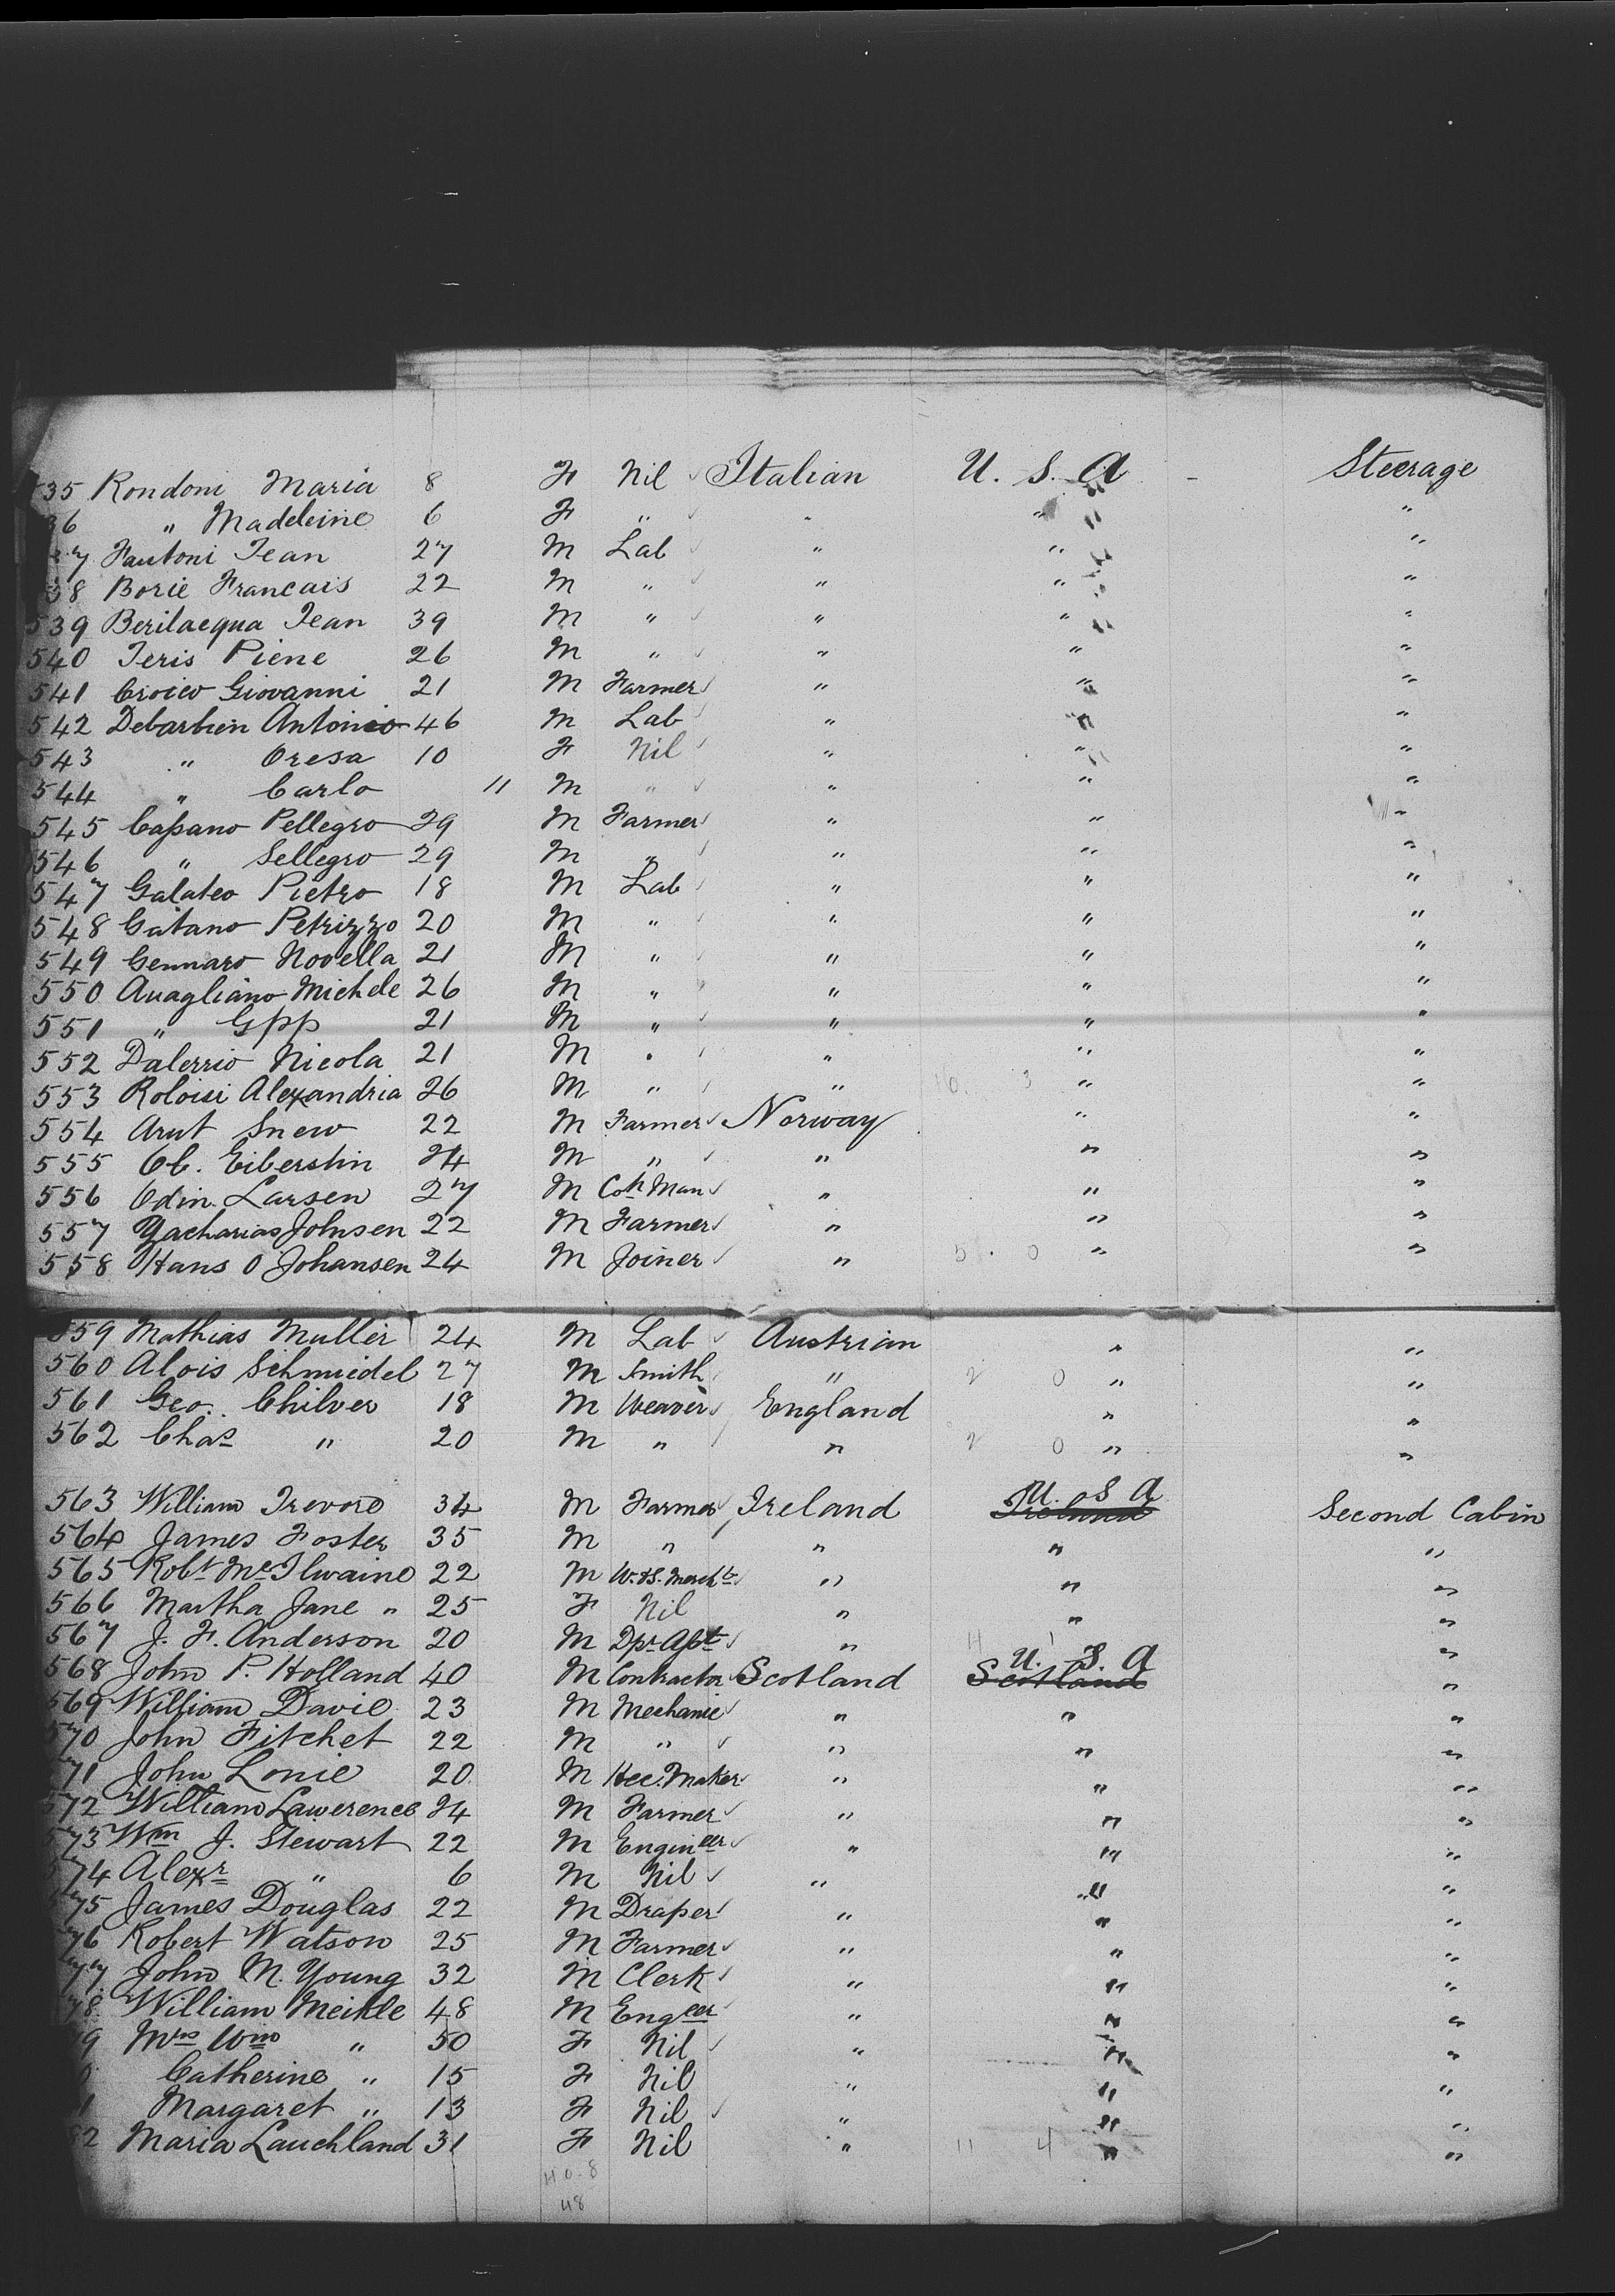 35 Rondoni Maria 8 F Nil Italian U. S. A Steerage
36 " Madeleine 6 F " " " "
37 Fantoni Jean 27 M Lab " " "
38 Borie Francais 22 M " " " "
539 Berilacqua Jean 39 M " " " "
540 Jeris Piene 26 M " " " "
541 Croico Giovanni 21 M Farmer " " "
542 Debarbien Antonio 46 M Lab " " "
543 " Oresa 10 F Nil " " "
544 " Carlo 11 M " " " "
545 Cassano Pellegro 29 M Farmer " " "
546 " Sellegro 29 M " " " "
547 Galateo Pietro 18 M Lab " " "
548 Gatano Petrizzo 20 M " " " "
549 Gennaro Novella 21 M " " " "
550 Avagliano Michele 26 M " " " "
551 " Gpp 21 M " " " "
552 Dalerrio Nicola 21 M " " " "
553 Roloisi Alexandria 26 M " " 10. 3 " "
554 Arut Snew 22 M Farmer Norway " "
555 Ob. Eiberstin 24 M " " " "
556 Odin. Larsen 27 M Coh Man " " "
557 Zacharias Johnsen 22 M Farmer " " "
558 Hans O Johansen 24 M Joiner " 5. 0 " "
559 Mathias Muller 24 M Lab Austrian " "
560 Alois Schmiedel 27 M Smith " 2 0 " "
561 Geo. Chilver 18 M Weaver England " "
562 Chas " 20 M " " 2 0 " "
563 William Trevord 34 M Farmer Ireland U. S A Ireland Second Cabin
564 James Foster 35 M " " " "
565 Robt McIlwaine 22 M W.&S. Mercht " " "
566 Martha Jane " 25 F Nil " " "
567 J. F. Anderson 20 M Dpr Asst " "
568 John P. Holland 40 M Contractor Scotland U. S. A Scotland "
569 William Davie 23 M Mechanic " " "
570 John Fitchet 22 M " " " "
571 John Lonie 20 M Hec. Maker " " "
572 William Lawerence 24 M Farmer " " "
573 Wm J. Stewart 22 M Engineer " " "
574 Alexr " 6 M Nil " " "
575 James Douglas 22 M Draper " " "
76 Robert Watson 25 M Farmer " " "
77 John M. Young 32 M Clerk " " "
78 William Meikle 48 M Engeer " " "
9 Mrs Wm " 50 F Nil " " "
0 Catherine " 15 F Nil " " "
1 Margaret " 13 F Nil " " "
82 Maria Lauchland 31 F Nil " 11 4 " "
40-8
48